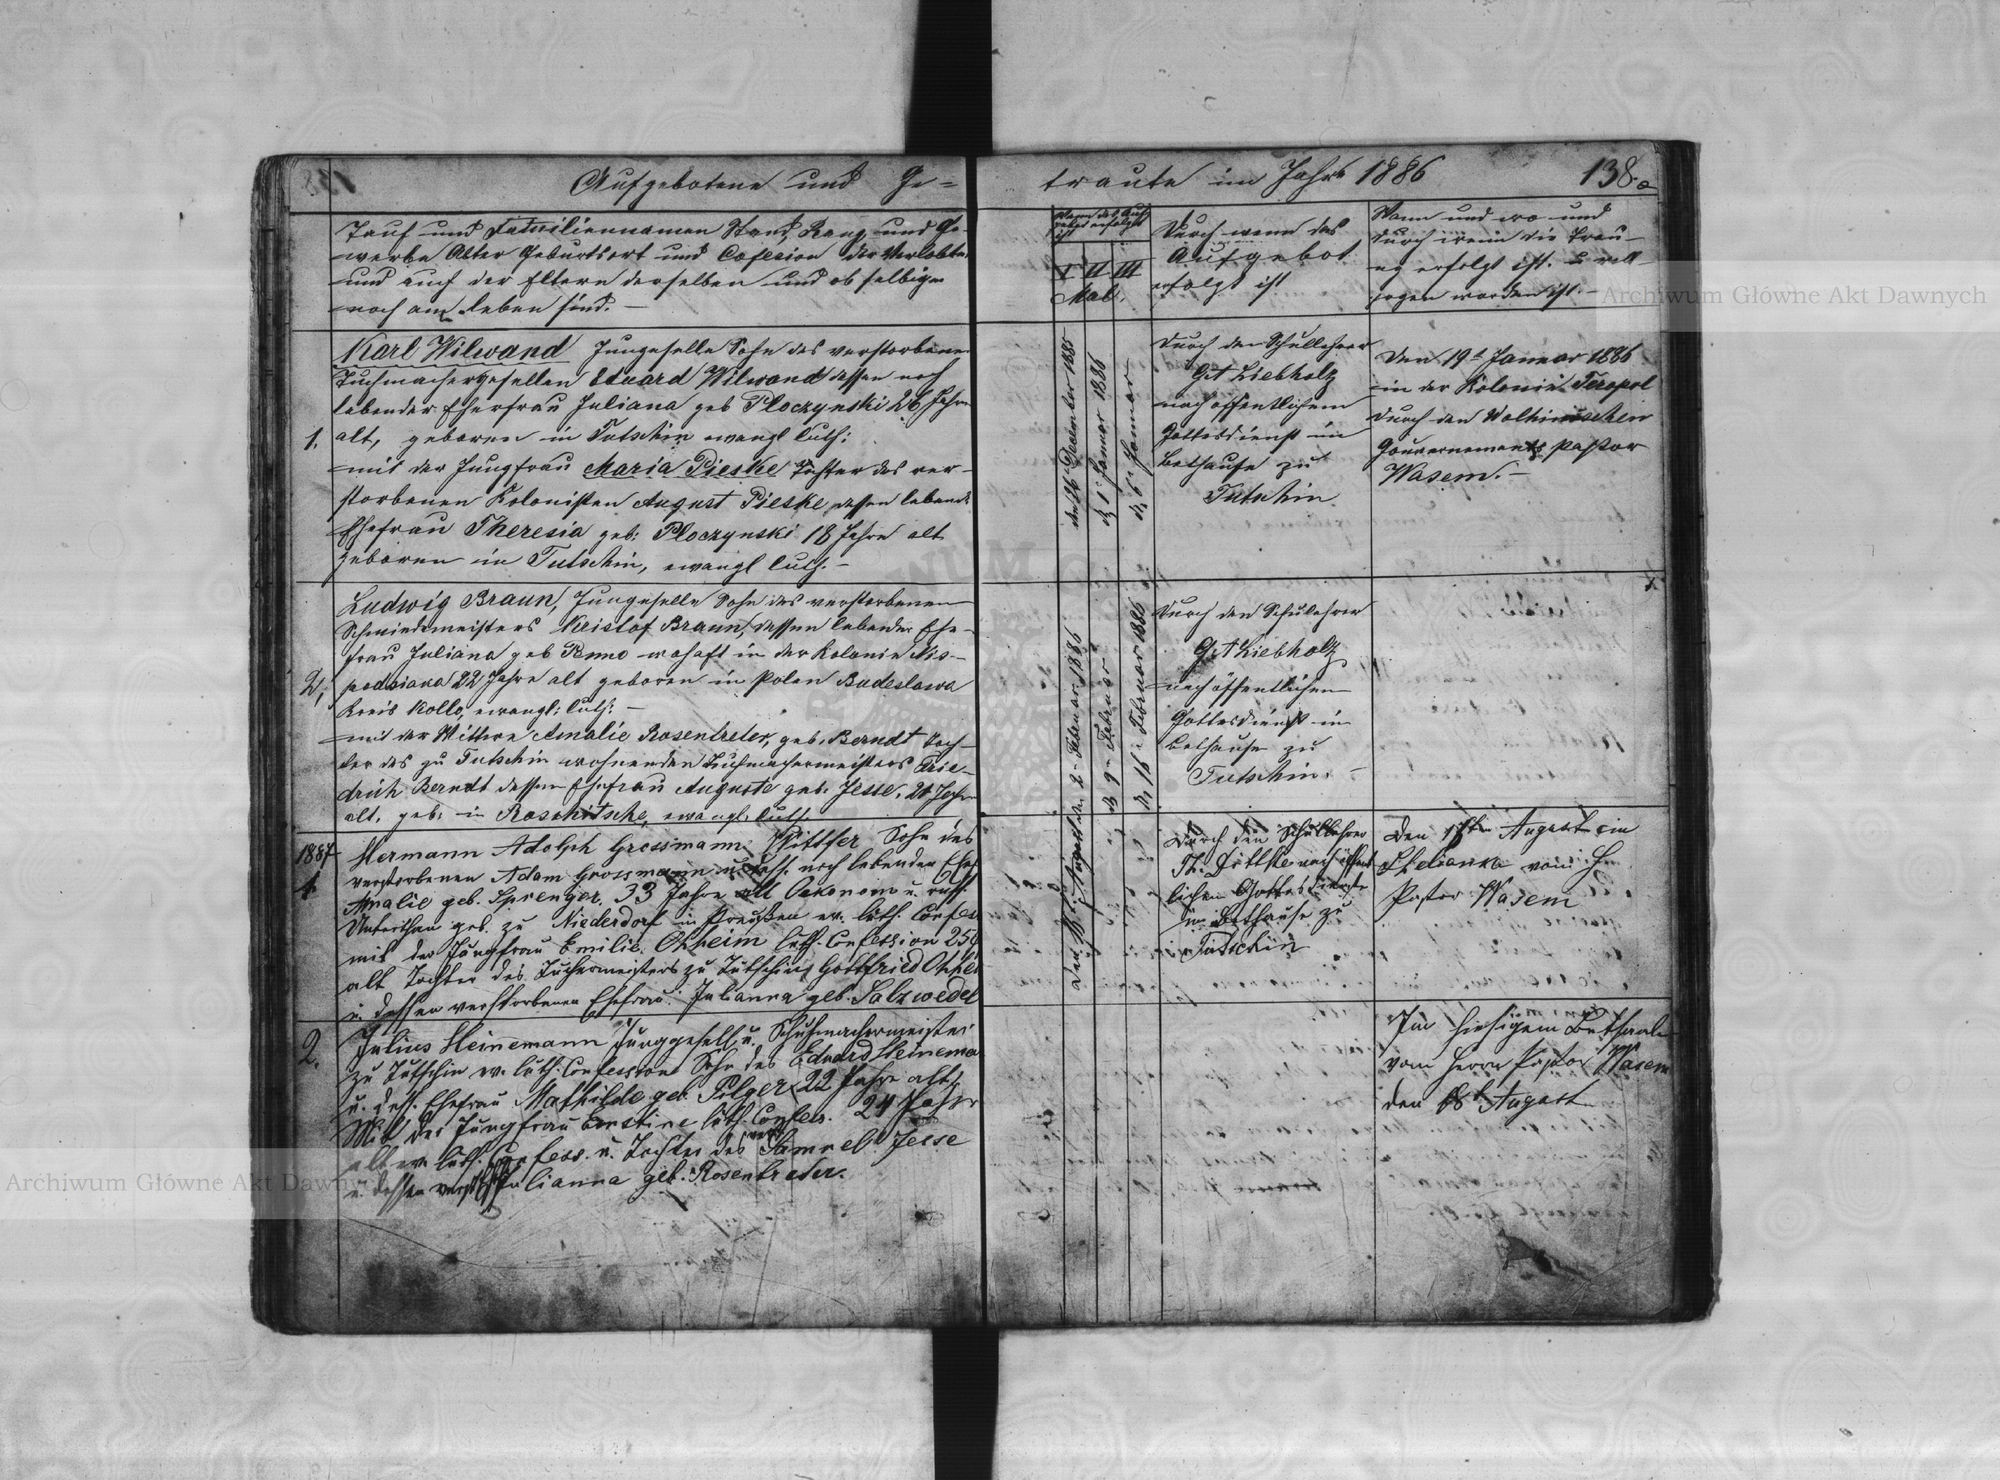 Aufgebotene und Ge=
traute im Jahre 1886
138.
Tauf und Familiennamen Stand, Rang und Ge-
werbe Alter Geburtsort und Cofesion der Verlobten
und auch der Eltern derselben und ob selbige
noch am Leben sind. —
Wann das Auf
gebot erfolgt
ist
I II III
Mal.
Durch wenn das
Aufgebot
erfolgt ist
Wann und wo und
durch wenn die Trau-
ng erfolgt ist. u voll-
zogen worden ist. —
1.
Karl Wilwand Jungeselle Sohn des verstorbenen
Tuchmachergesellen Eduard Wilwand dessen noch
lebender Eherfrau Juliana geb Ploczynski 26 Jahre
alt, geboren in Tutschin ewangl luth:
mit der Jungfrau Maria Pieske Tochter des ver-
storbenen Kolonisten August Pieske, dessen lebende
Ehefrau Theresia geb: Ploczynski 18 Jahre alt
geboren in Tutschin, ewangl luth. —
den 26 December 1885
d. 1 Januar 1886
d. 6 Januar
Durch den Schullehrer
G. A Liebholz
nach öffentlichem
Gottesdienst im
Bethause zu
Tutschin
Den 19t Januar 1886
in der Kolonie Teropol
durch den Wolhinischen
Gouvernements Pastor
Wasem. —
2,
Ludwig Braun, Jungeselle Sohn des verstorbenen
Schmiedemeisters Kristof Braun, dessen lebender Ehe-
frau Juliana geb Penno wohaft in der Kolonie
22 Jahre alt geboren in Polen Budeslawa
Kreis Kollo, ewangl: luth: —
mit der Wittwe Amalie Rosentreter, geb. Berndt Toch-
ter des zu Tutschin wohnenden Tuchmachermeisters Frie-
drich Berndt dessen Ehefrau Auguste geb. Jesse, 21 Jahre
alt, geb. in Roschitsche, ewangl. luth.
d. 2 Februar 1886
d. 9 Februar
d. 16 Februar 1886
Durch den Schulehrer
G. A Liebholz
nach öffentlichen
Gottesdienst im
Bethause zu
Tutschin. —
1887
1.
Hermann Adolph Grossmann. Wittfer Sohn des
verstorbenen Adam Grossmann u. dess. noch lebenden Ehef
Amalie geb. Sprenger. 33 Jahre alt Oekonom u. russ.
Unterthan geb. zu Niederdorf in Preußen ev. luth. Confes
mit der Jungfrau Emilie Okheim luth. Confession 25
alt Tochter des Tuchermeisters zu Tutschin Gottfried
u. dessen verstorbenen Ehefrau. Julianna geb. Salzwedel
Durch den Schullehrer
nach öffent
lichen Gottesdienste
im Bethause zu
Tutschin
Den 17ten August in
vom H.
Pastor Wasem
2.
Julius Heinemann Junggesell u. Schuhmachermeister
zu Tutschin ev. luth. Confession Sohn des Eduard Heinema
u. dess. Ehefrau Mathilde geb. Pilger 22 Jahre alt,
Mit der Jungfrau Ernstine luth. Confess. 24 Jahr
alt ev. luth. Confess. u. Tochter des Samuel Jesse
u. dessen verst. Julianna geb. Rosentreter.
Im hiesigem Bethaale
vom Herrn Pastor Wasem
den 18t August
Archiwum Główne Akt Dawnych
Archiwum Główne Akt Dawnych